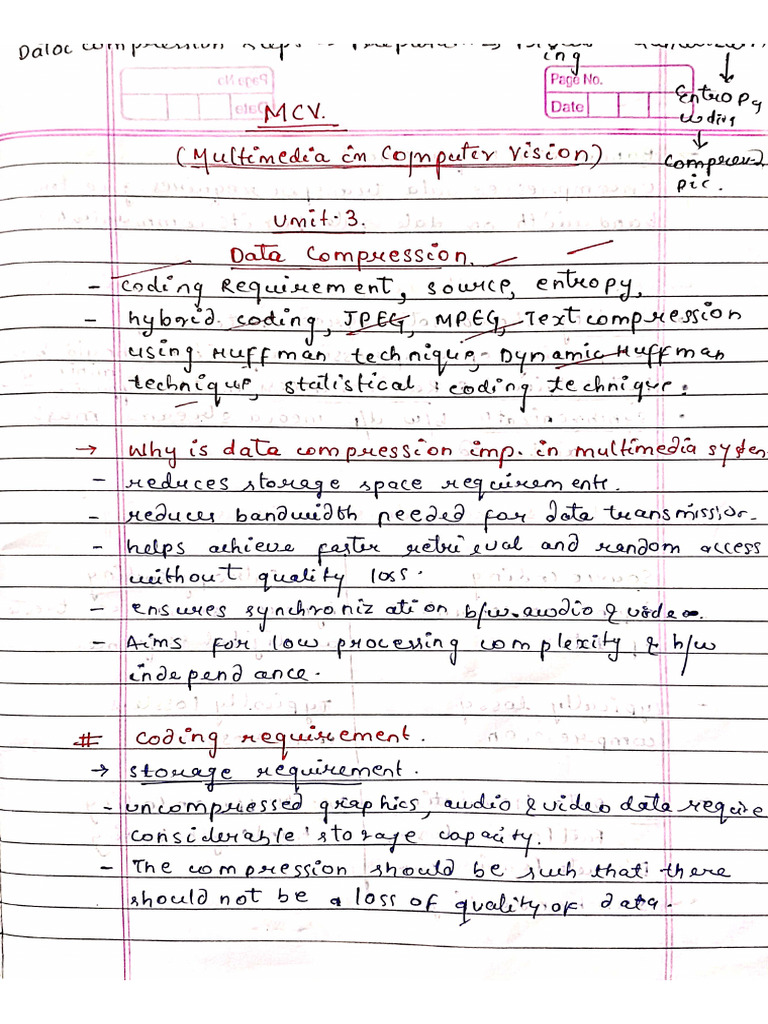 Data compression steps
ing
Page No.
Date
Entropy
coding
compressed
pic.
MCV.
(Multimedia in computer vision)
Unit-3.
Data Compression.
- coding Requirement, source, entropy,
- hybrid coding, JPEG, MPEG, Text compression
using Huffman technique, Dynamic Huffman
technique, statistical coding technique.
→ Why is data compression imp. in multimedia system
- reduces storage space requirements.
- reduces bandwidth needed for data transmission.
- helps achieve faster retrieval and random access
without quality loss.
- ensures synchronization b/w audio & video.
- Aims for low processing complexity & h/w
independance.
# coding requirement.
→ storage requirement.
- uncompressed graphics, audio & video data require
considerable storage capacity.
- The compression should be such that there
should not be a loss of quality of data.